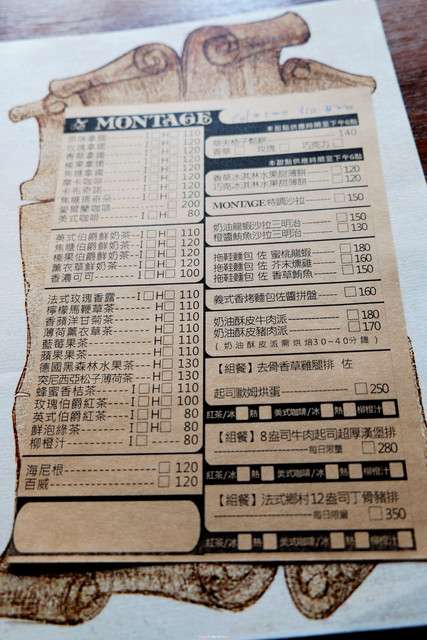 MONTAGE
原味拿鐵 I H 110
玫瑰拿鐵 I H 110
香草拿鐵 I H 110
榛果拿鐵 I H 110
焦糖拿鐵 I H 110
摩卡咖啡 I H 120
卡布奇諾 I H 120
焦糖瑪奇朵 I H 120
愛爾蘭咖啡 H 200
美式咖啡 I H 80
英式伯爵鮮奶茶 I H 110
焦糖伯爵鮮奶茶 I H 120
榛果伯爵鮮奶茶 I H 120
薰衣草鮮奶茶 I H 120
香濃可可 I H 100
法式玫瑰香露 I H 110
檸檬馬鞭草茶 H 110
香蘋洋甘菊茶 H 110
薄荷薰衣草茶 H 110
藍莓果茶 H 110
蘋果果茶 H 110
德國黑森林水果茶 H 130
突尼西亞松子薄荷茶 H 130
蜂蜜香桔茶 I H 110
玫瑰伯爵紅茶 I H 100
英式伯爵紅茶 I H 80
鮮泡綠茶 I H 80
柳橙汁 I 80
海尼根 120
百威 120
本甜點供應時間至下午6點
華夫格子鬆餅 140
香草 玫瑰 巧克力
本甜點供應時間至下午6點
香草冰淇淋水果甜薄餅 120
巧克冰淇淋水果甜薄餅 120
MONTAGE特調沙拉 150
奶油龍蝦沙拉三明治 150
橙醬鮪魚沙拉三明治 130
拖鞋麵包 佐 蜜桃龍蝦 180
拖鞋麵包 佐 芥末燻雞 160
拖鞋麵包 佐 香草鮪魚 150
義式香烤麵包佐醬拼盤 160
奶油酥皮牛肉派 180
奶油酥皮豬肉派 170
(奶油酥皮派需烘焙30~40分鐘)
【組餐】去骨香草雞腿排 佐
起司歐姆烘蛋 250
紅茶/冰 熱 美式咖啡/冰 熱 柳橙汁
【組餐】8盎司牛肉起司超厚漢堡排
每日限量 280
紅茶/冰 熱 美式咖啡/冰 熱 柳橙汁
【組餐】法式鄉村12盎司丁骨豬排
每日限量 350
紅茶/冰 熱 美式咖啡/冰 熱 柳橙汁